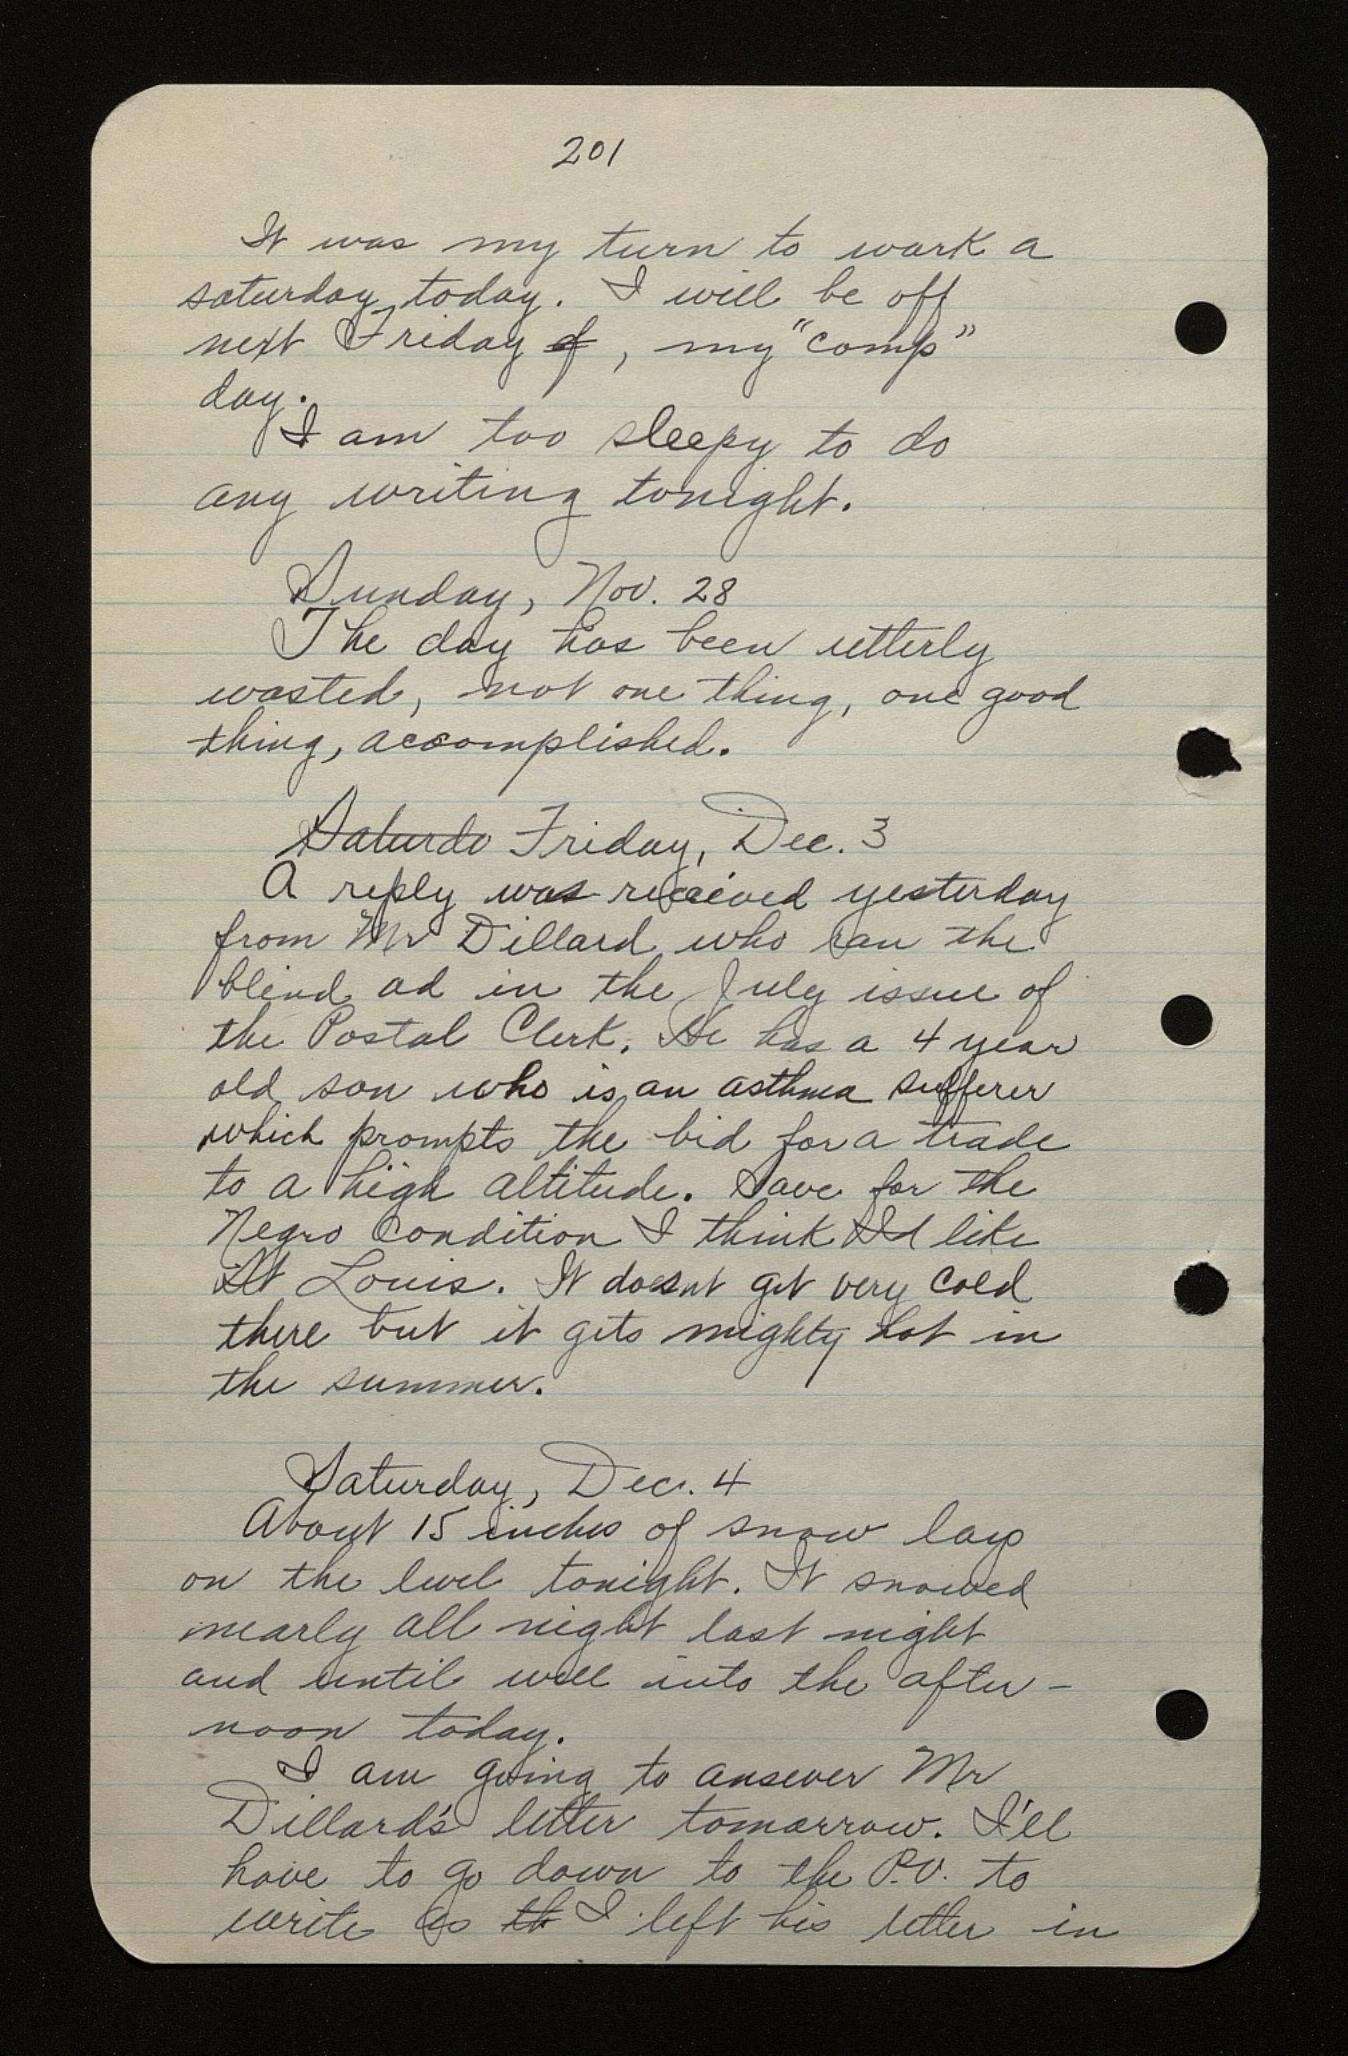 201
It was my turn to work a
saturday today. I will be off
next Friday of, my "comp"
day.
I am too sleepy to do
any writing tonight.
Sunday, Nov. 28
The day has been utterly
wasted, not one thing, one good
thing, accomplished.
Saturda Friday, Dec. 3
A reply was received yesterday
from Mr Dillard who ran the
blind ad in the July issue of
the Postal Clerk. He has a 4 year
old son who is an asthma sufferer
which prompts the bid for a trade
to a high altitude. Save for the
Negro Condition I think I'd like
St Louis. It doesnt get very cold
there but it gets mighty hot in
the summer.
Saturday, Dec. 4
About 15 inches of snow lays
on the level tonight. It snowed
nearly all night last night
and until well into the after-
noon today.
I am going to answer Mr
Dillard's letter tomorrow. I'll
have to go down to the P.O. to
write as th I left his letter in